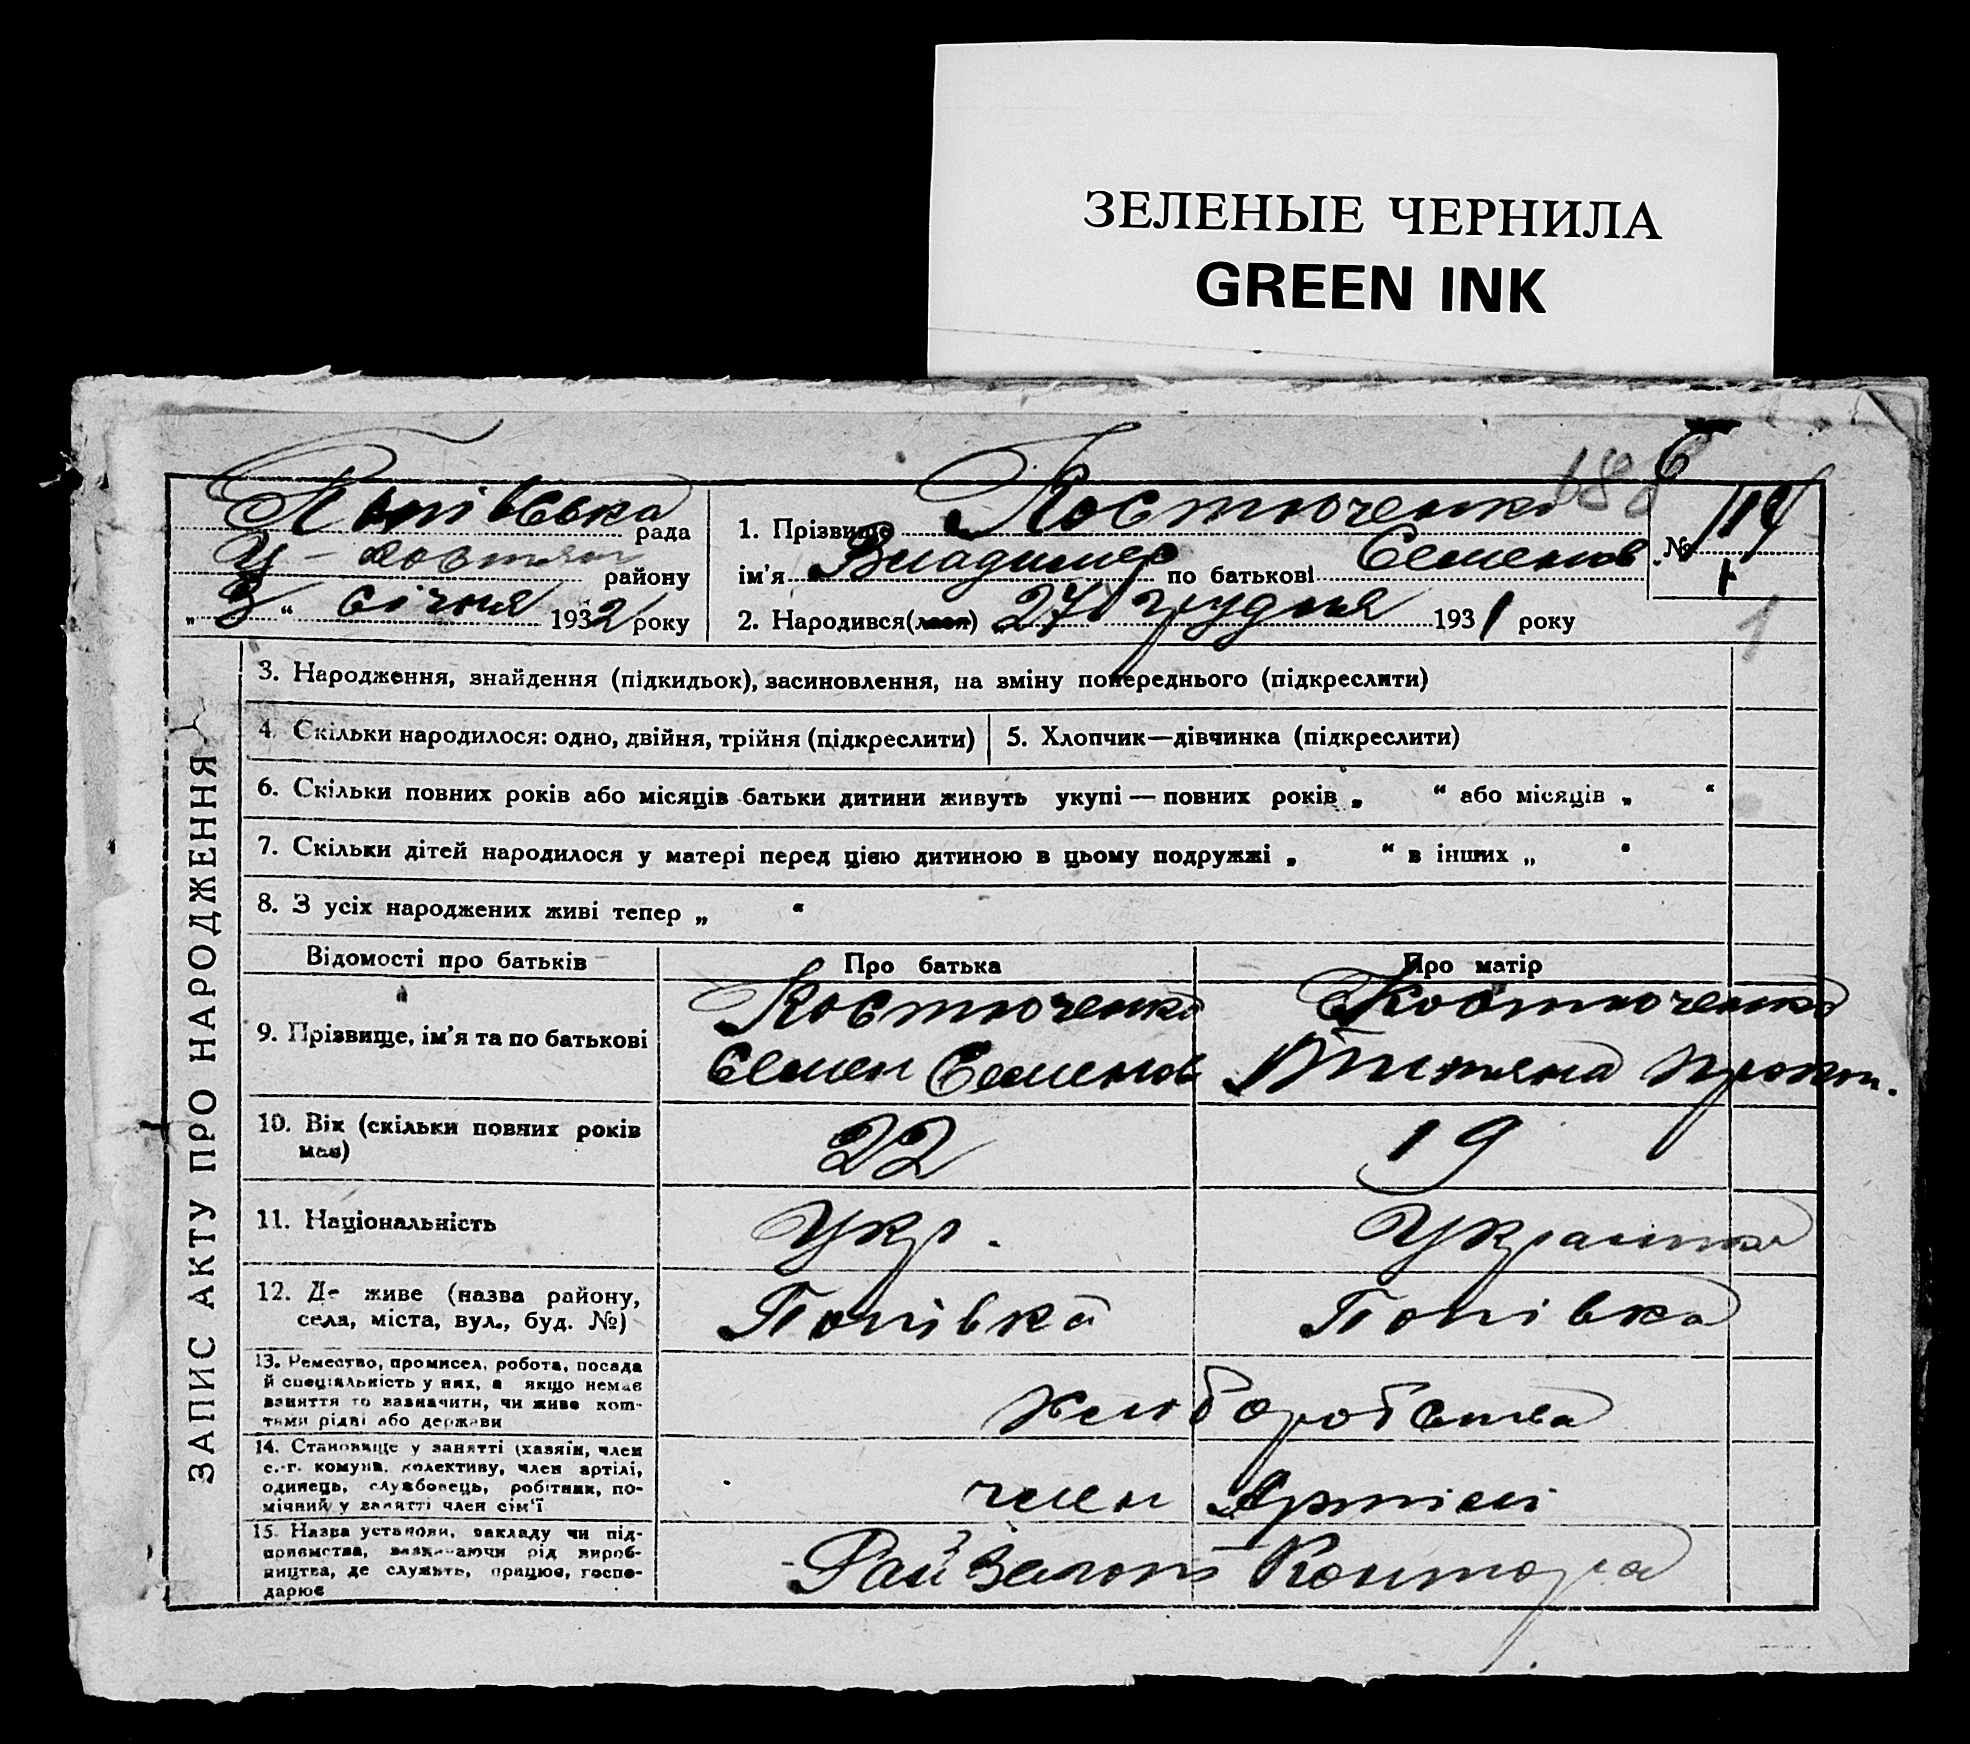 ЗЕЛЕНЫЕ ЧЕРНИЛА
GREEN INK
Попівська рада
району
„ 3 “ січня 1932 року
1. Прізвище Костюченко
ім'я Владимер по батькові Семенов
2. Народився(лася) 27 грудня 1931 року
188
6
№
1
ЗАПИС АКТУ ПРО НАРОДЖЕННЯ
3. Народження, знайдення (підкидьок), засиновлення, на зміну попереднього (підкреслити)
4. Скільки народилося: одно, двійня, трійня (підкреслити)
5. Хлопчик—дівчинка (підкреслити)
6. Скільки повних років або місяців батьки дитини живуть укупі — повних років „ “ або місяців „ “
7. Скільки дітей народилося у матері перед цією дитиною в цьому подружжі „ “ в інших „ “
8. З усіх народжених живі тепер „ “
Відомості про батьків
Про батька
Про матір
9. Прізвище, ім'я та по батькові
Костюченко
Семен Семенов
Костюченко
Титяна Прокоп.
10. Вік (скільки повних років
має)
22
19
11. Національність
Укр.
Украинка
12. Де живе (назва району,
села, міста, вул., буд. №)
Попівка
Попівка
13. Ремество, промисел, робота, посада
й спеціяльність у них, а якщо немає
заняття то зазначити, чи живе кош-
тами рідні або держави
хлюборобства
14. Становище у занятті (хазяїн, член
с.-г. комуни, колективу, член артілі,
одинець, службовець, робітник, по-
мічний у занятті член сім'ї
член Артілі
15. Назва установи, закладу чи під-
приємства, зазначаючи рід вироб-
ництва, де служить, працює, госпо-
дарює
Контора